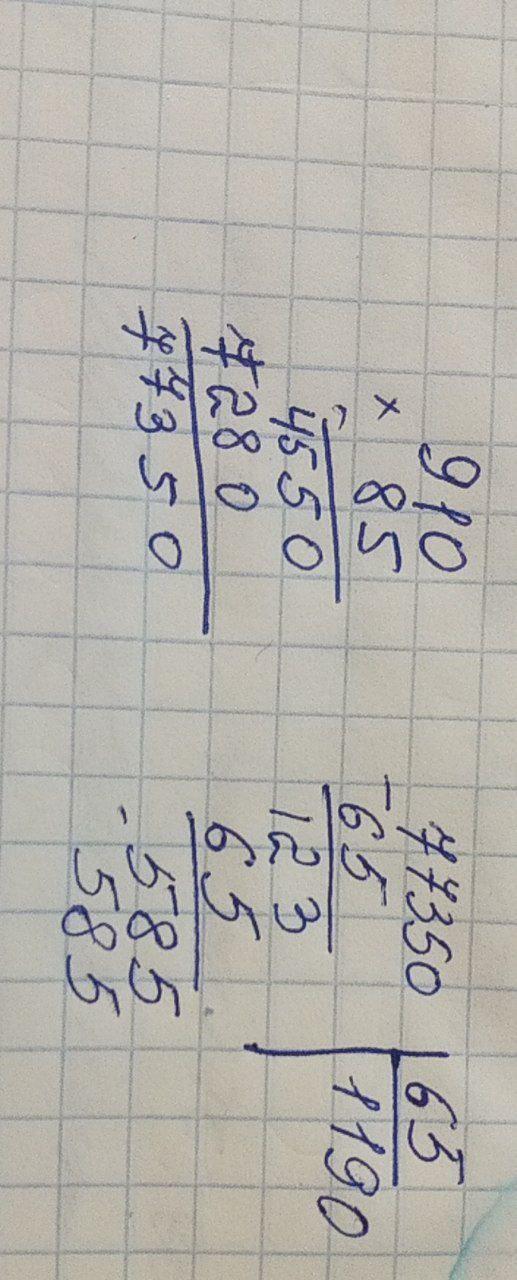 910
× 85
4550
7280
77350
77350 | 65
- 65 1190
123
65
- 585
585